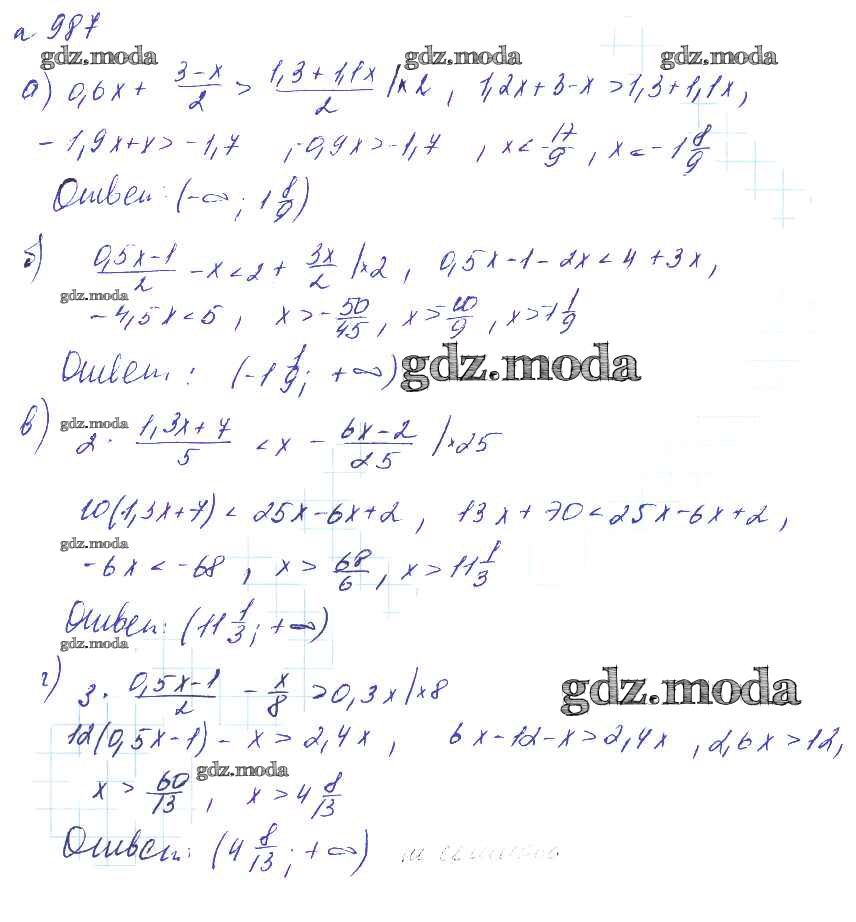 № 987
gdz.moda gdz.moda gdz.moda
а) 0,6x + (3-x)/2 > (1,3+1,1x)/2 |×2, 1,2x+3-x>1,3+1,1x,
-1,9x+x>-1,7, -0,9x>-1,7, x<-17/9, x<-1 8/9
Ответ: (-∞; 1 8/9)
б) (0,5x-1)/2 - x<2 + 3x/2 |×2, 0,5x-1-2x<4+3x,
gdz.moda
-4,5x<5, x>-50/45, x>-10/9, x>-1 1/9
Ответ: (-1 1/9; +∞) gdz.moda
в) gdz.moda
2 · (1,3x+7)/5 < x - (6x-2)/25 |×25
10(1,3x+7) < 25x-6x+2, 13x+70<25x-6x+2,
gdz.moda
-6x < -68, x > 68/6, x>11 1/3
Ответ: (11 1/3; +∞)
gdz.moda
г) 3 · (0,5x-1)/2 - x/8 >0,3x |×8 gdz.moda
12(0,5x-1) - x > 2,4x, 6x-12-x>2,4x, 2,6x>12,
gdz.moda
x > 60/13, x>4 8/13
Ответ: (4 8/13; +∞)